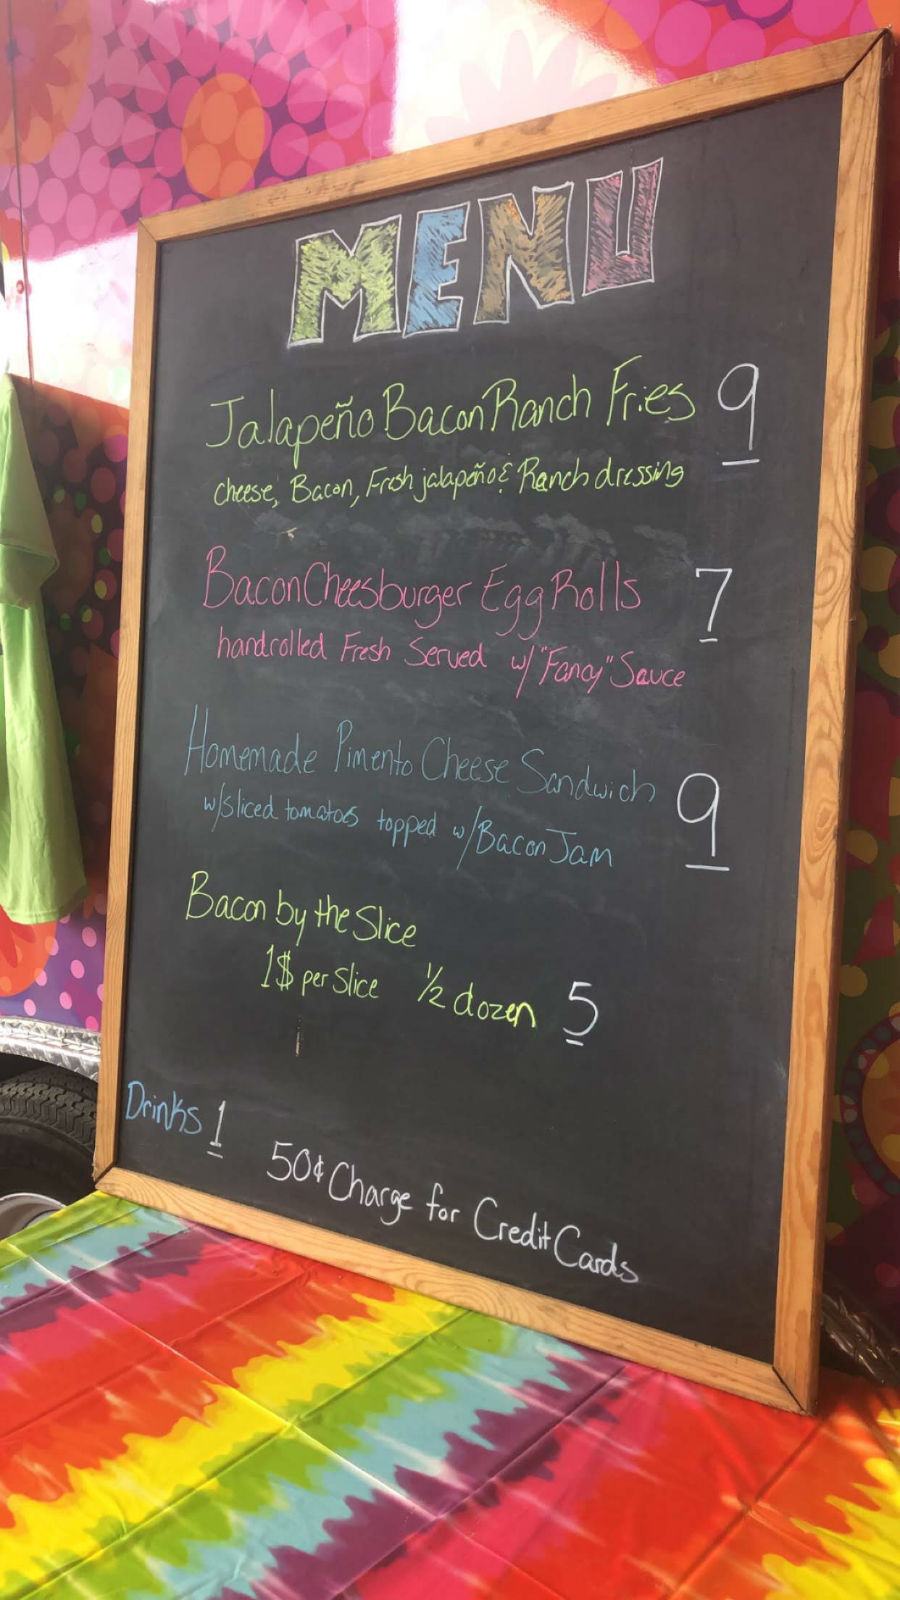 MENU
Jalapeño Bacon Ranch Fries 9
cheese, Bacon, Fresh jalapeño & Ranch dressing
Bacon Cheesburger Egg Rolls 7
handrolled Fresh Served w/"Fancy" Sauce
Homemade Pimento Cheese Sandwich 9
w/sliced tomatoes topped w/Bacon Jam
Bacon by the Slice
1$ per Slice ½ dozen 5
Drinks 1
50¢ Charge for Credit Cards